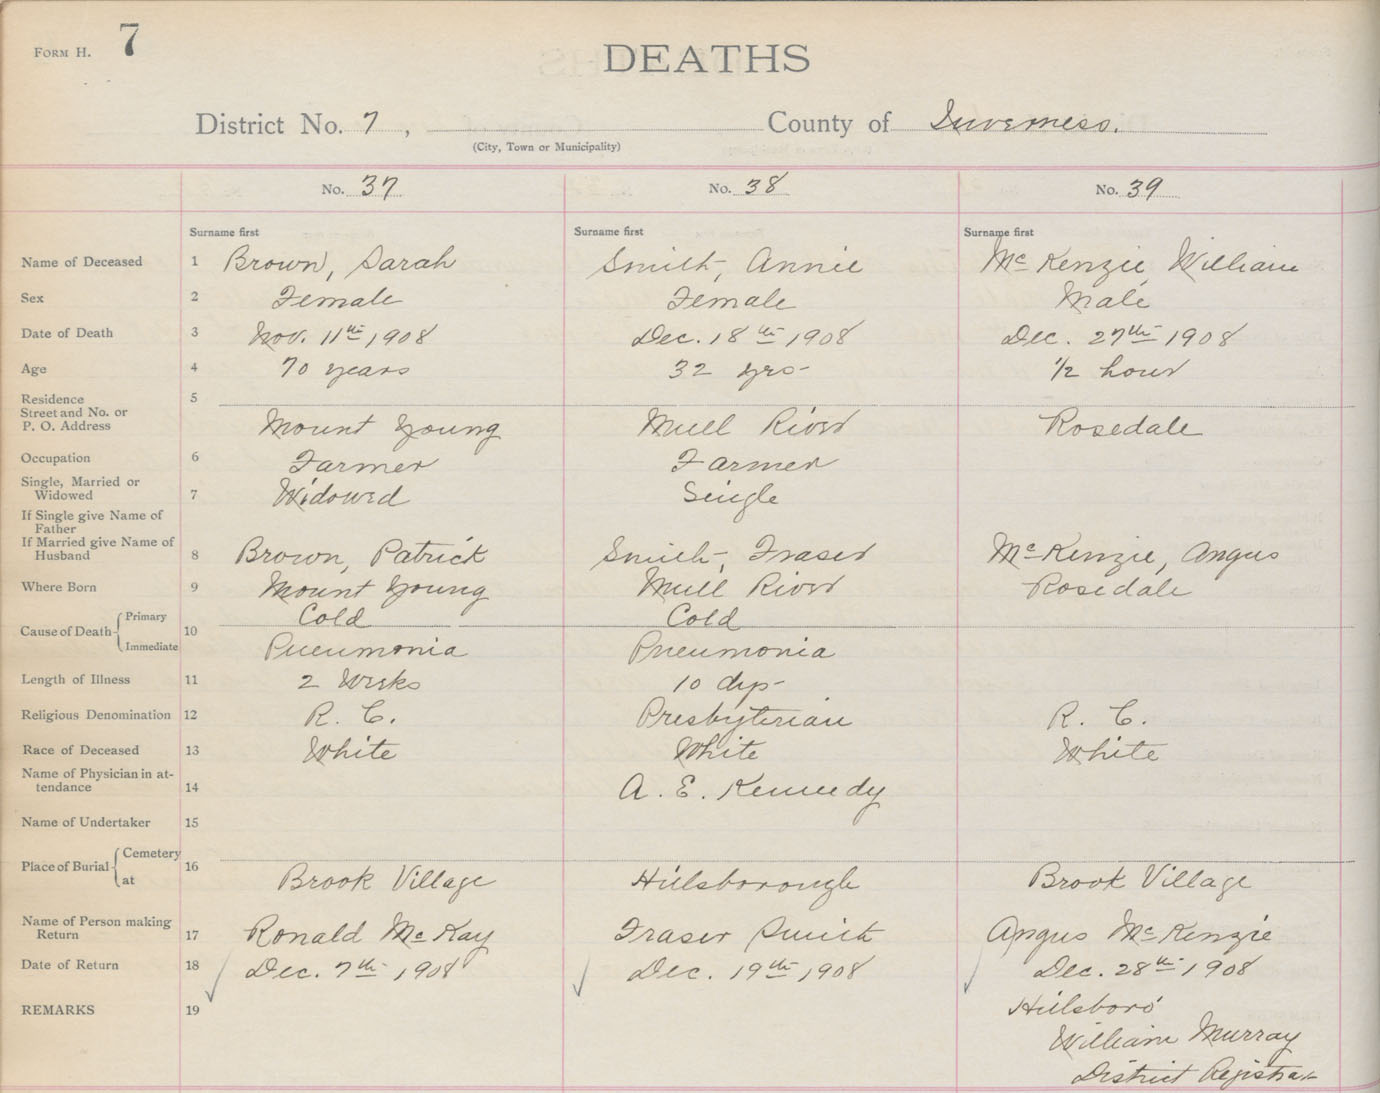 FORM H. 7
DEATHS
District No. 7, County of Inverness.
(City, Town or Municipality)
No. 37 No. 38 No. 39
Surname first Surname first Surname first
Name of Deceased 1 Brown, Sarah Smith, Annie McKenzie William
Sex 2 Female Female Male
Date of Death 3 Nov. 11th 1908 Dec. 18th 1908 Dec. 27th 1908
Age 4 70 years 32 yrs- 1/2 hour
Residence 5
Street and No. or
P. O. Address Mount Young Mull River Rosedale
Occupation 6 Farmer Farmer
Single, Married or
Widowed 7 Widowed Single
If Single give Name of
Father
If Married give Name of
Husband 8 Brown, Patrick Smith, Fraser McKenzie, Angus
Where Born 9 Mount Young Mull River Rosedale
Cause of Death Primary 10 Cold Cold
Immediate Pneumonia Pneumonia
Length of Illness 11 2 Weeks 10 dys-
Religious Denomination 12 R. C. Presbyterian R. C.
Race of Deceased 13 White White White
Name of Physician in at-
tendance 14 A. E. Kennedy
Name of Undertaker 15
Place of Burial Cemetery 16
at Brook Village Hillsborough Brook Village
Name of Person making
Return 17 Ronald McKay Fraser Smith Angus McKenzie
Date of Return 18 Dec. 7th 1908 Dec. 19th 1908 Dec. 28th 1908
REMARKS 19 Hillsboro'
William Murray
District Registrar